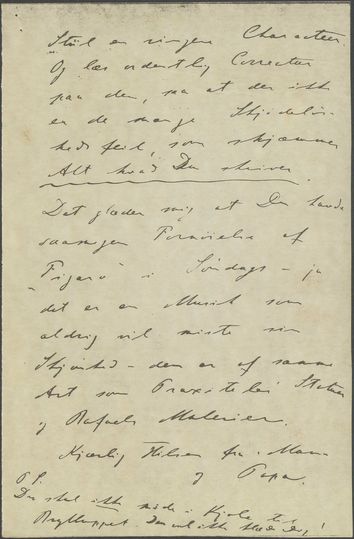 Stiil en ringere Character
Og læs ordentlig Correctur
paa den, saa at der ikke
er de mange Skjødesløs-
heds feil, som skjæmmer
Alt hvad Du skriver.
Det glæder mig at Du havde
saamegen Fornøielse af
"Figaro" i Søndags - ja
det er en Musik som
aldrig vil miste sin
Skjønhed - den er af samme
Art som Praxiteles' Statuer
og Rafaels Malerier.
Kjærlig Hilsen fra Mama
og Papa.
P.S.
Du skal ikke møde i Kjole til
Brylluppet. Det vil ikke klæde Dig!